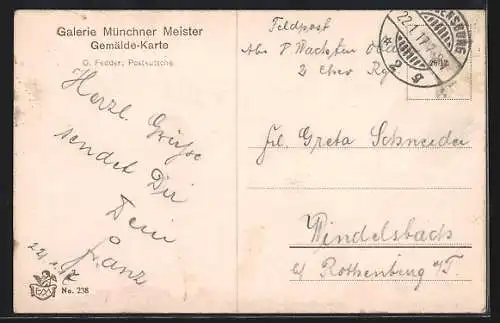 Galerie Münchner Meister
Gemälde-Karte
O. Fedder: Postkutsche
Herzl. Grüße
sendet Dir
Dein
Franz
Feldpost
Abs
2 Chev Rg
22.1.17
2 g
Frl. Greta Schneider
Windelsbach
b/ Rothenburg o/T.
No. 238